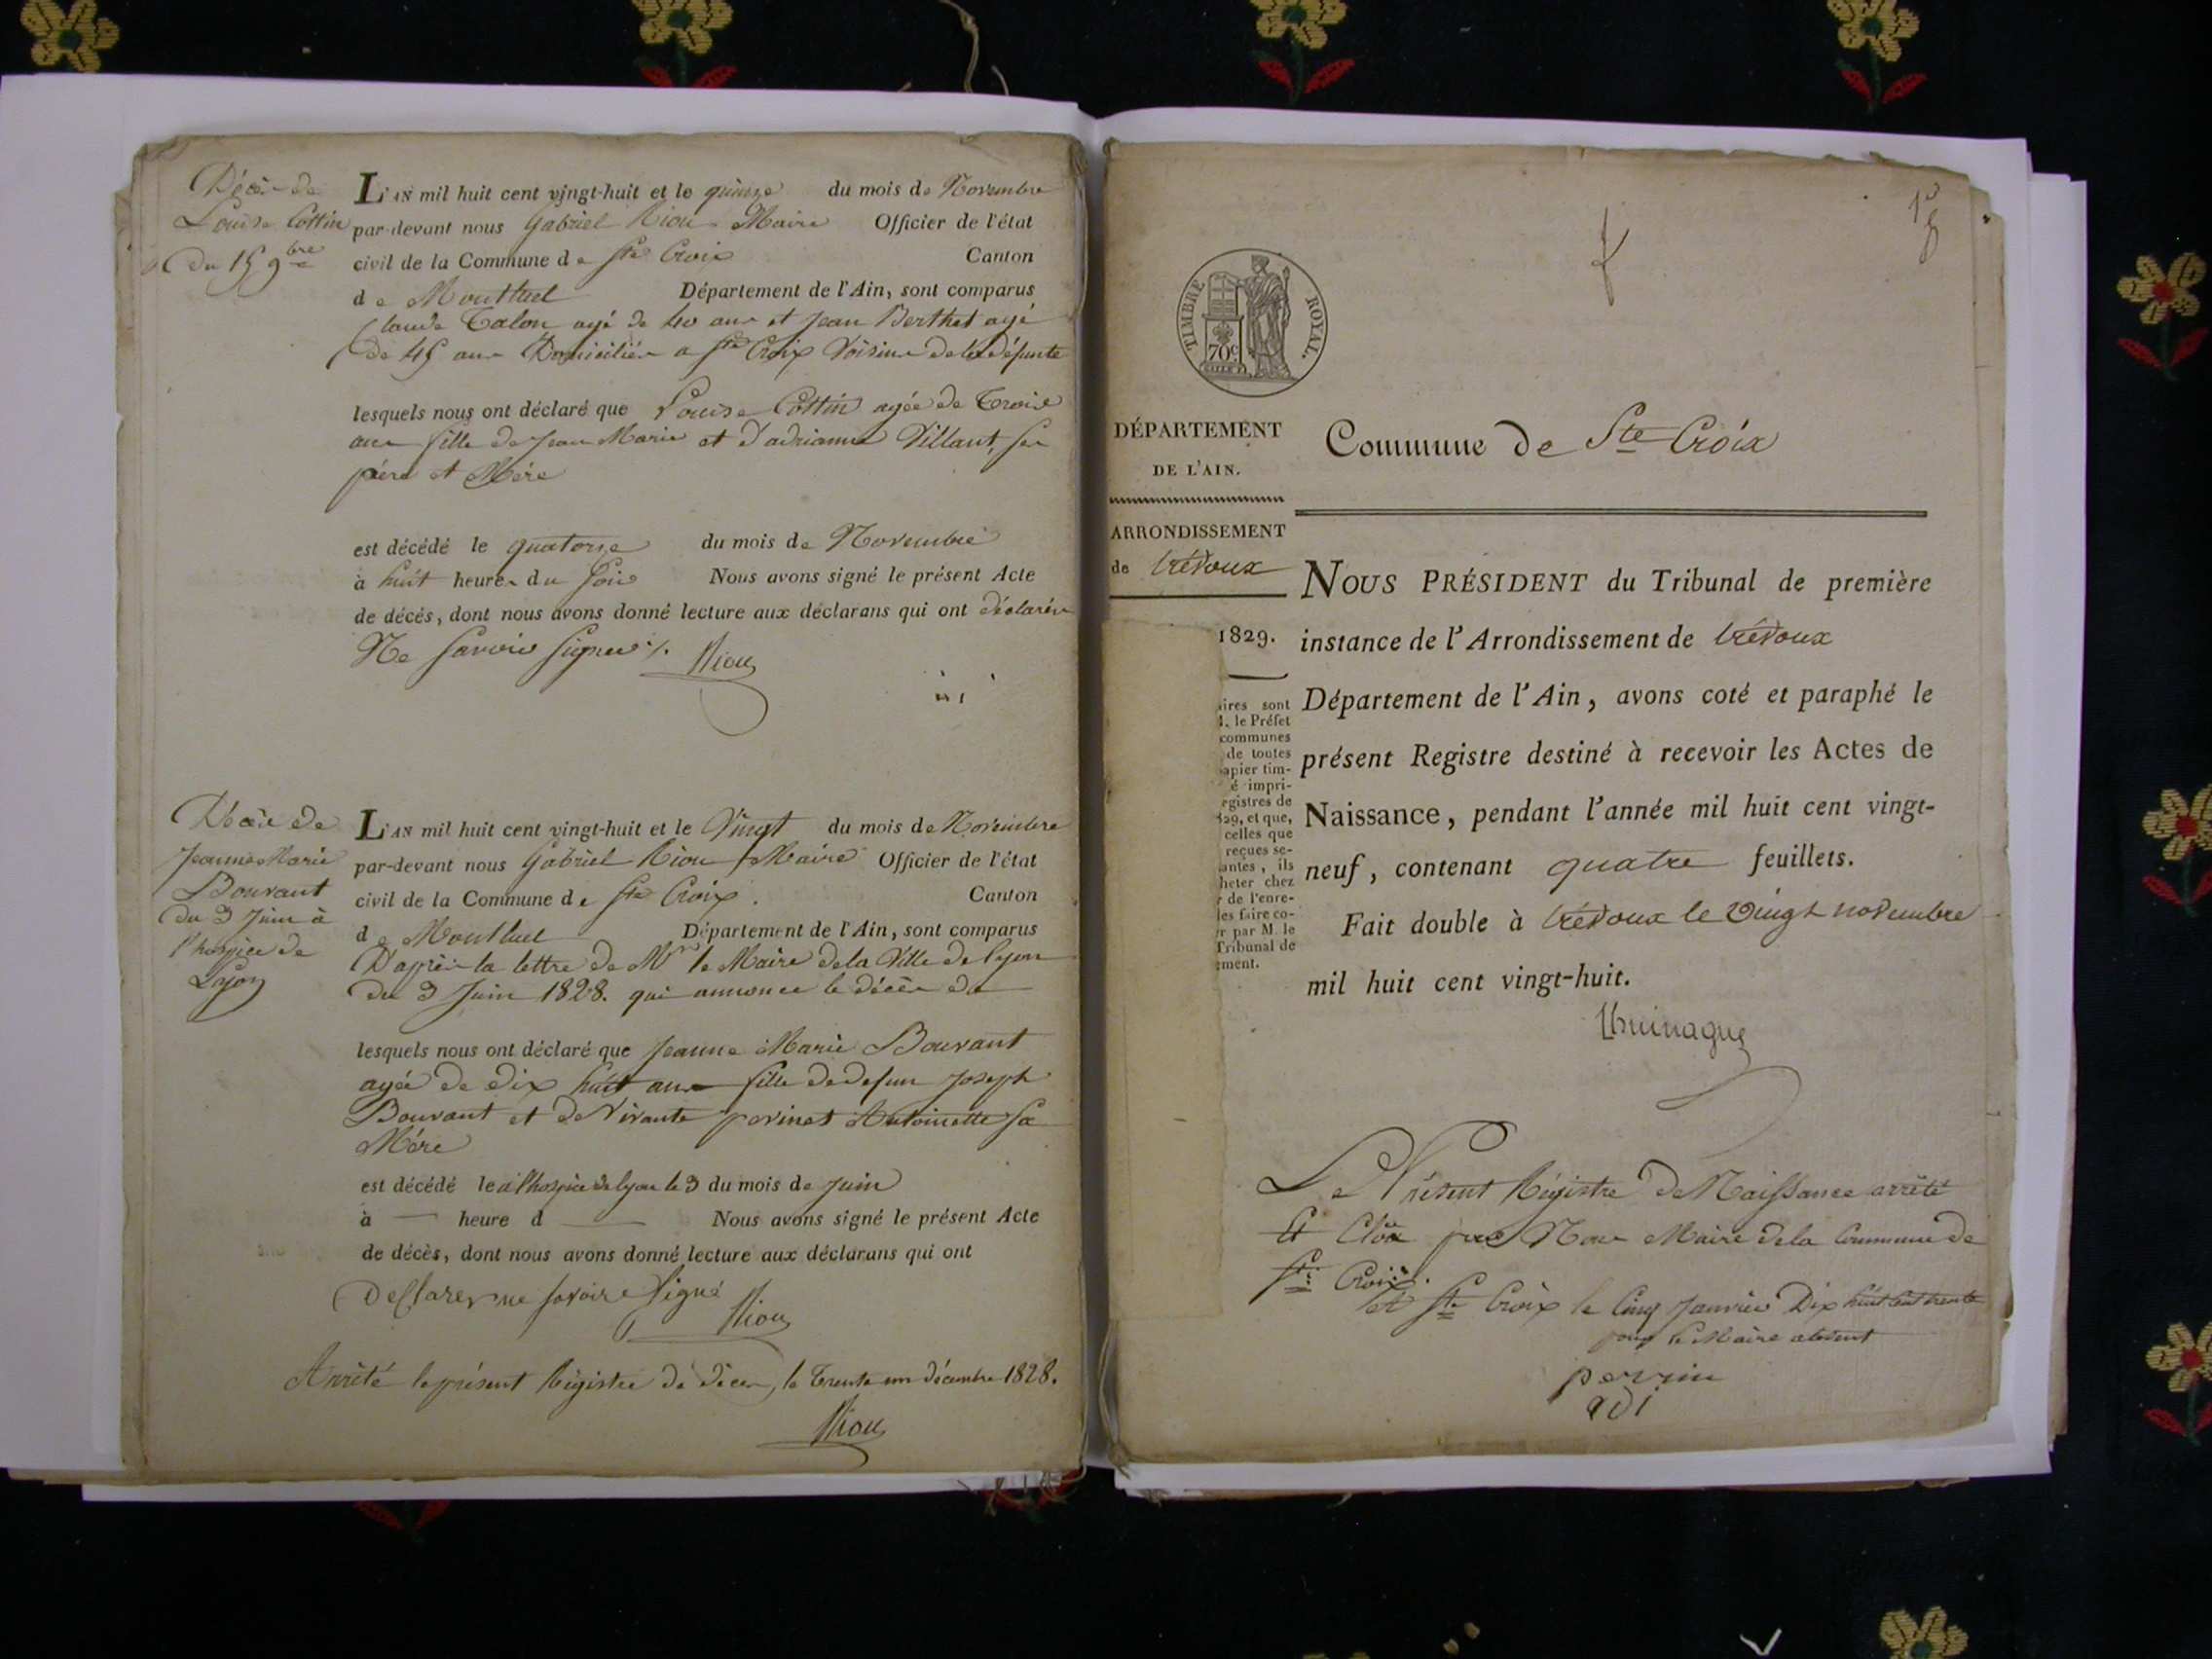 Décès de
Louise Cottin
du 15 9bre
L'AN mil huit cent vingt-huit et le quinze du mois de Novembre
par-devant nous Gabriel Riou Maire Officier de l'état
civil de la Commune de Ste Croix Canton
de Montluel Département de l'Ain, sont comparus
Claude Talon agé de 40 ans et Jean Berthet agé
de 45 ans Domiciliés a Ste Croix Voisins de la défunte
lesquels nous ont déclaré que Louise Cottin agée de Trois
ans fille de Jean Marie et d'adrianne Villant, ses
père et Mère
est décédé le quatorze du mois de Novembre
à huit heures du Soir Nous avons signé le présent Acte
de décés, dont nous avons donné lecture aux déclarans qui ont déclarés
Ne Savoir Signer ./. Riou
Décès de
Jeanne Marie
Bouvant
du 3 Juin à
l'hospice de
Lyon
L'AN mil huit cent vingt-huit et le Vingt du mois de Novembre
par-devant nous Gabriel Riou Maire Officier de l'état
civil de la Commune de Ste Croix. Canton
de Montluel Département de l'Ain, sont comparus
D'après la lettre de Mr le Maire de la Ville de Lyon
du 3 Juin 1828. qui annonce le décès de
lesquels nous ont déclaré que Jeanne Marie Bouvant
agée de dix huit ans fille de defun Joseph
Bouvant et de Vivante perinet Antoinette Sa
Mére
est décédé le a l'hospice de lyon le 3 du mois de Juin
à — heure d — Nous avons signé le présent Acte
de décès, dont nous avons donné lecture aux déclarans qui ont
Desclarer ne savoir Signé
Riou
Arrêté le présent Régistre de décès, le Trente un décembre 1828.
Riou
1er
TIMBRE ROYAL.
70c
DÉPARTEMENT
DE L'AIN.
Commune de Ste Croix
ARRONDISSEMENT
de trévoux
1829.
ires sont
. le Préfet
communes
de toutes
apier tim-
é impri-
gistres de
829, et que,
celles que
reçues se-
antes, ils
heter chez
r de l'enre-
les faire co-
r par M. le
Tribunal de
ement.
NOUS PRÉSIDENT du Tribunal de première
instance de l'Arrondissement de trévoux
Département de l'Ain, avons coté et paraphé le
présent Registre destiné à recevoir les Actes de
Naissance, pendant l'année mil huit cent vingt-
neuf, contenant quatre feuillets.
Fait double à trévoux le vingt novembre
mil huit cent vingt-huit.
Le Présent Régistre de Naissance arrêté
Et Clôs par Nous Maire de la Commune de
Ste Croix.
a Ste Croix le Cinq Janvier Dix huit cent trente
pour le Maire absent
perrin
adj